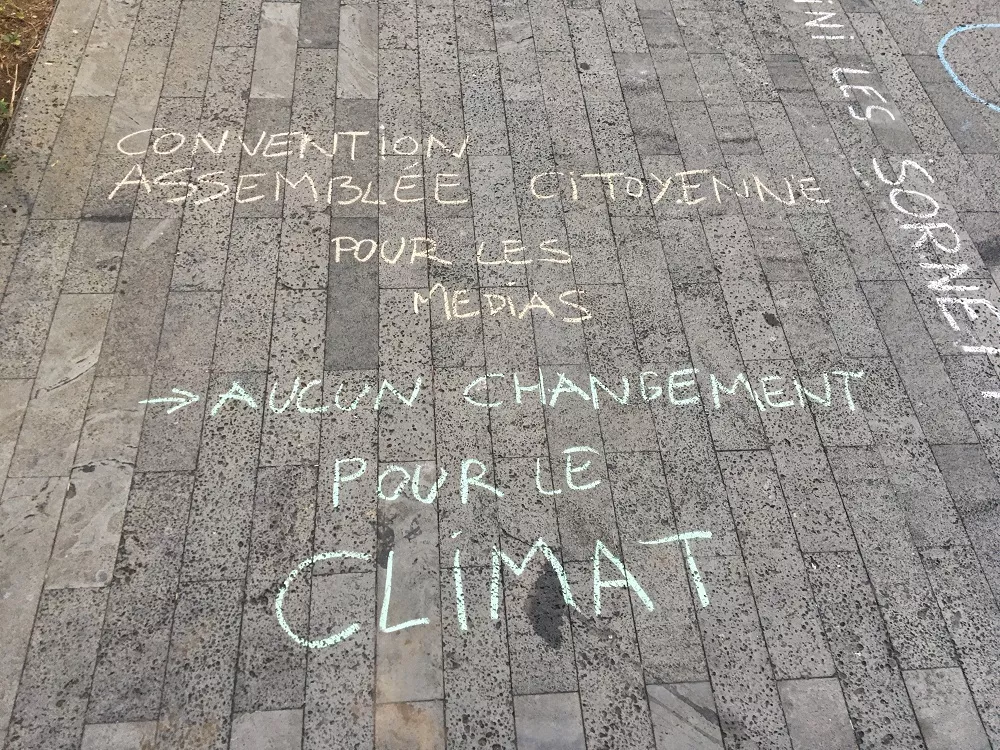 CONVENTION
ASSEMBLÉE CITOYENNE
POUR LES
MEDIAS
→ AUCUN CHANGEMENT
POUR LE
CLIMAT
LES SORNET